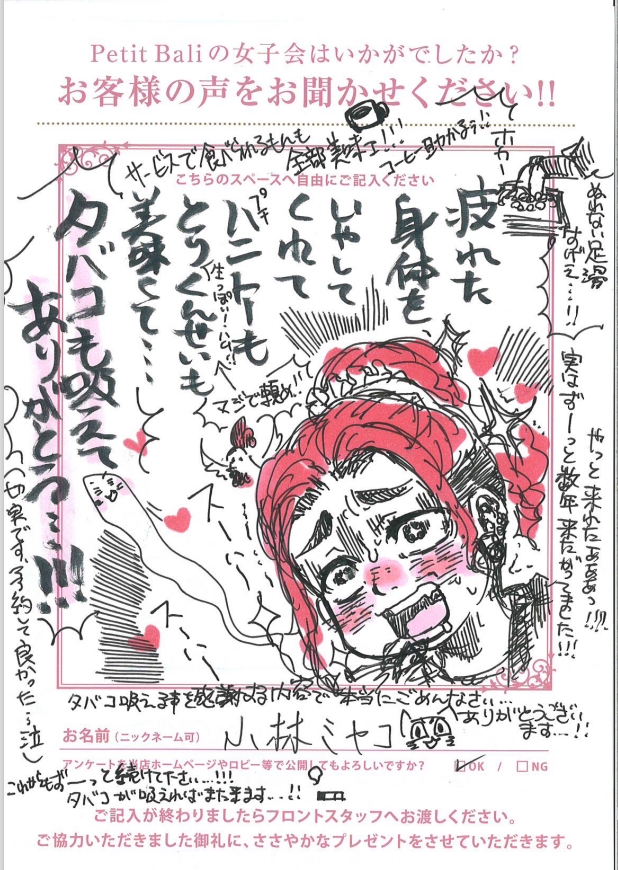 Petit Baliの女子会はいかがでしたか？
お客様の声をお聞かせください!!
サービスで食べられるもんも
全部美味エ!!!
コーヒー助かるぅ!!
ホカー
こちらのスペースへ自由にご記入ください
疲れた
身体を、
いやして
くれて
プチ
ハニトーも
とりくんせいも
美味くて…
タバコも吸えて
ありがとう…!!!
マジで頼め!!
ぬれない足湯
すげぇ…!!
やっと来れたぁぁぁっ!!!
実はずーっと数年来たがってました!!!
予約して良かった…泣
タバコ吸える事を感謝する内容で本当にごめんなさい…
ありがとうござい
ます…!!
お名前（ニックネーム可）
小林ミヤコ
アンケートを当店ホームページやロビー等で公開してもよろしいですか？ OK / NG
これからもずーっと続けて下さい…!!!
タバコが吸えればまた来ます…!!
ご記入が終わりましたらフロントスタッフへお渡しください。
ご協力いただきました御礼に、ささやかなプレゼントをさせていただきます。